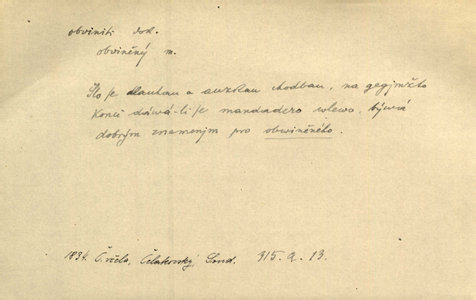 obviniti dok.
obviněný m.
Šlo se dlauhau a auzkau chodbau, na gegjmžto
konci dáwá-li se mandadero wlewo, býwá
dobrým znamenjm pro obwiněného.
1834. Č. včela, Čelakovský, 315. a. 13.